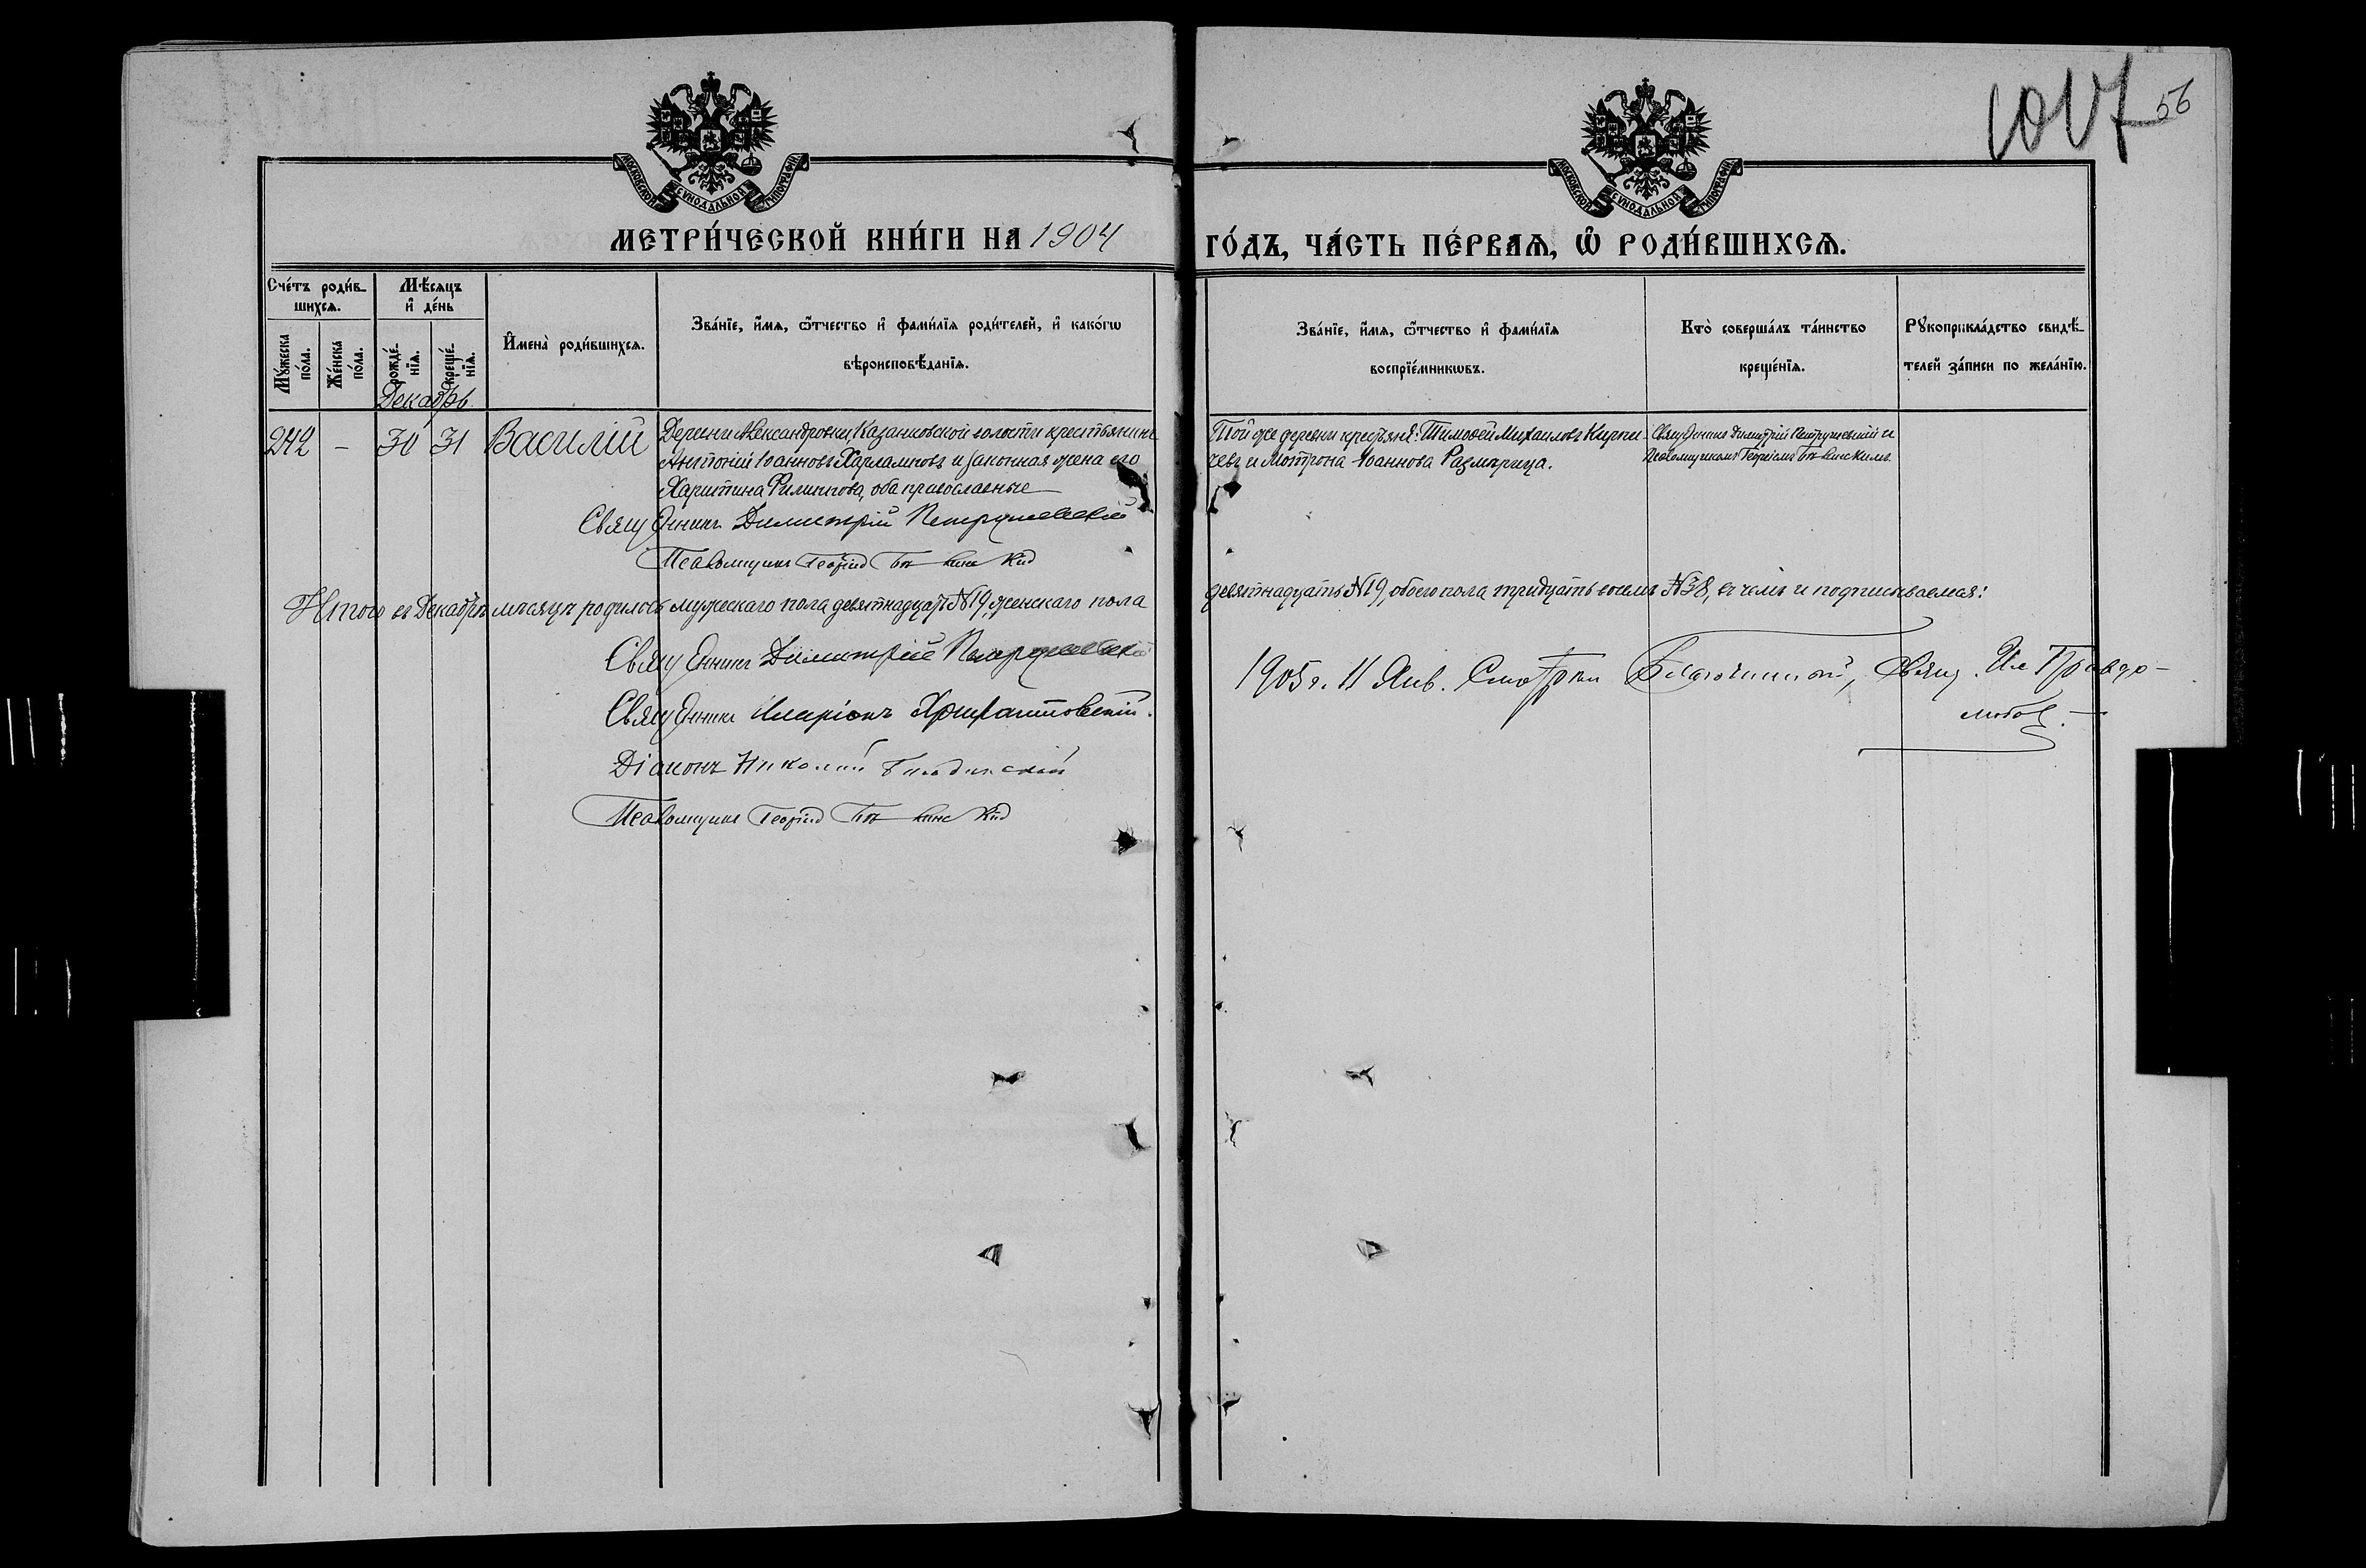 1017 56
МОСКОВСКОЙ СѴНОДАЛЬНОЙ ТИПОГРАФІИ
МОСКОВСКОЙ СѴНОДАЛЬНОЙ ТИПОГРАФІИ
МЕТРИ́ЧЕСКОЙ КНИ́ГИ НА 1904 ГО́ДЪ, ЧА́СТЬ ПЕ́РВАѦ, Ѽ РОДИ́ВШИХСѦ.
Сче́тъ роди́в-
шихсѧ.
Мꙋ́жеска по́ла.
Же́нска по́ла.
Мѣ́сѧцъ
и҆ де́нь
рожде́-
нїѧ.
креще́-
нїѧ.
И҆мена̀ роди́вшихсѧ.
Зва́нїе, и҆́мѧ, ѻ҆́тчество и҆ фами́лїѧ роди́телей, и҆ како́гѡ
вѣроисповѣ́данїѧ.
Зва́нїе, и҆́мѧ, ѻ҆́тчество и҆ фами́лїѧ
воспрїе́мникѡвъ.
Кто̀ соверша́лъ та́инство
креще́нїѧ.
Рꙋкоприкла́дство свидѣ́-
телей за́писи по жела́нїю.
Декабрь
242 — 30 31 Василій
Деревни Александровки, Казанковской волости крестьянинъ
Антоній Іоанновъ Харламповъ и законная жена его
Харитина Филиппова, оба православные
Той же деревни крестьяне: Тимофей Михаиловъ Кирпи-
чевъ и Мотрона Іоаннова Размарица.
Священникъ Димитрій Петрушевскій и
Псаломщикомъ Георгіемъ
Священникъ Димитрій Петрушевскій
Псаломщикъ Георгій
Итого въ Декабрѣ мѣсяцѣ родилось мужескаго пола девятнадцать №19, женскаго пола
девятнадцать №19, обоего пола тридцать восемь №38, въ чемъ и подписываемся:
Священникъ Димитрій Петрушевскій
Священникъ Иларіонъ
Діаконъ Николай
Псаломщикъ Георгій
1905 г. 11 Янв. Смотрѣлъ Благочинный, Свящ. Правдо-
любов.